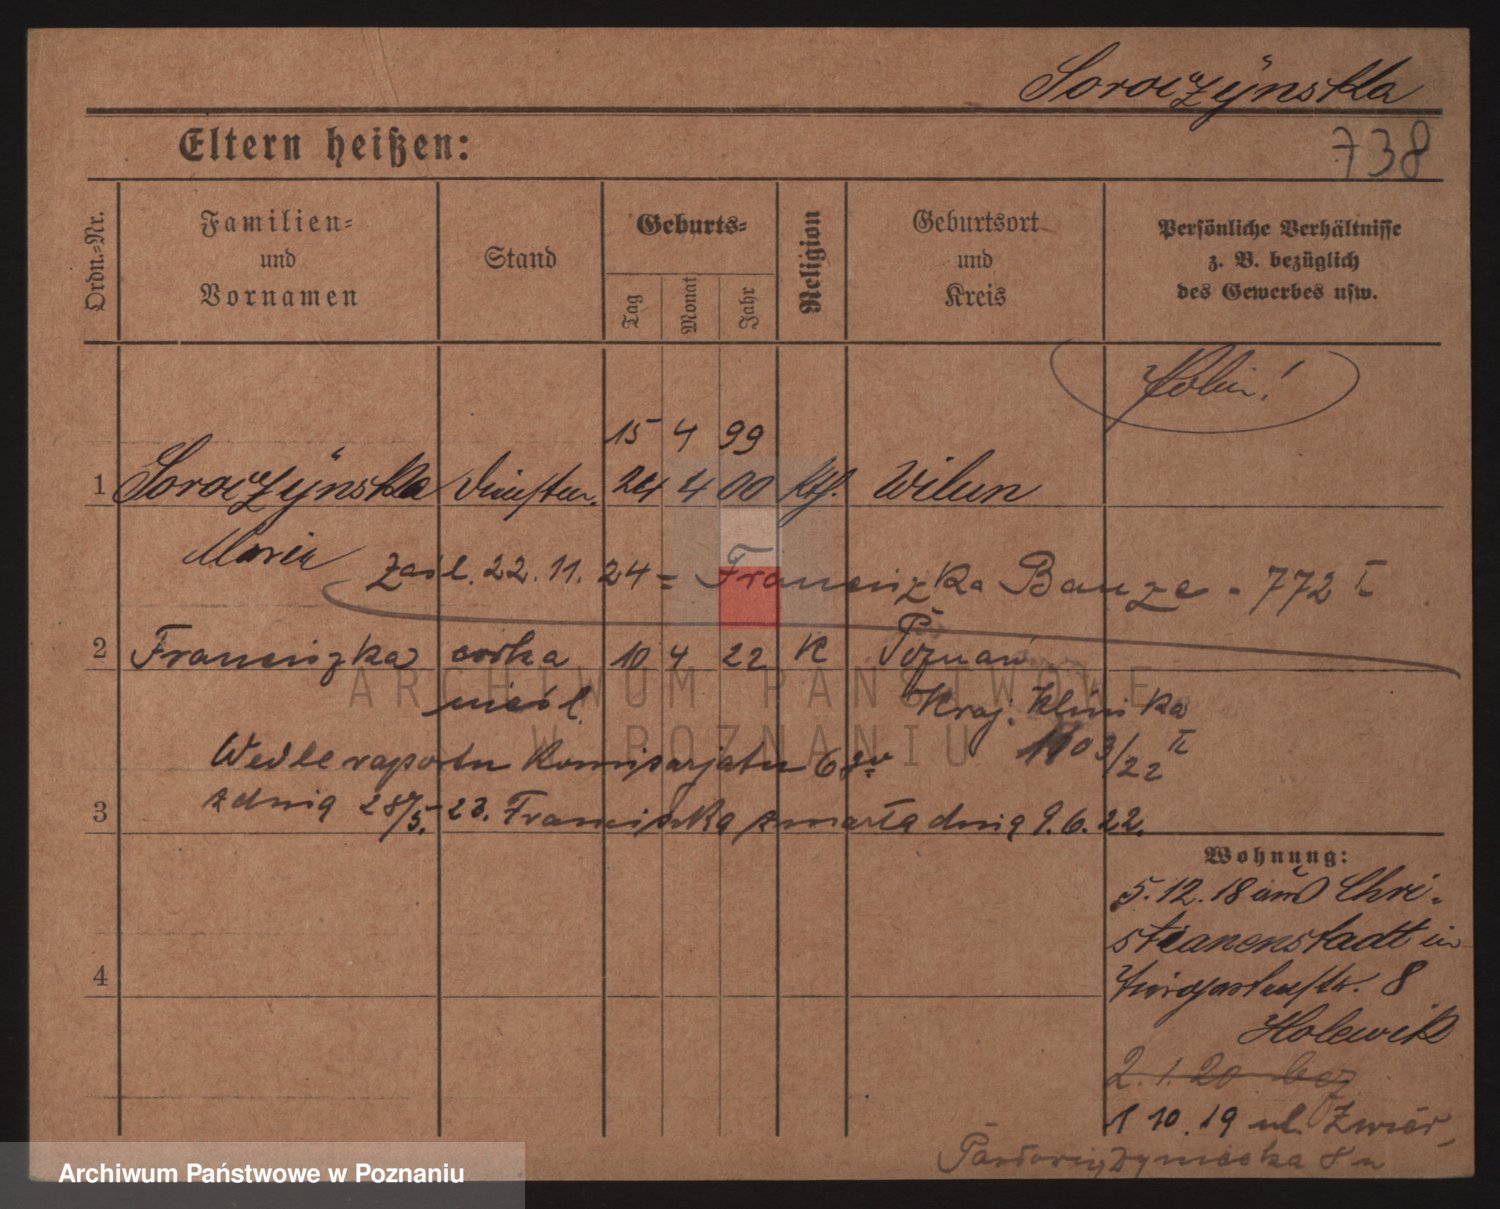 Soroczÿnska
Eltern heißen:
738
Ordn.-Nr.
Familien-
und
Vornamen
Stand
Geburts-
Tag
Monat
Jahr
Religion
Geburtsort
und
Kreis
Persönliche Verhältnisse
z. B. bezüglich
des Gewerbes usw.
15 4 99
1 Soroczÿnska 24 4 00 Kth. Wilun
Maria
zaśl. 22. 11. 24 = Franciszka Bauze - 772 I
2 Franciszka córka 10 4 22 K Poznań
nieśl. Kraj. Klinika
1103/22 II
Wedle raportu Komisarjatu 6go
z dnia 28/5. 23. Franciszka zmarła dnia 9.6.22.
3
Wohnung:
5.12.18 aus Chri-
stianenstadt in
8
4
Holewik
2. 1. 20 bez
1 10. 19 ul. Zwier-
8
ARCHIWUM PAŃSTWOWE
W POZNANIU
Archiwum Państwowe w Poznaniu